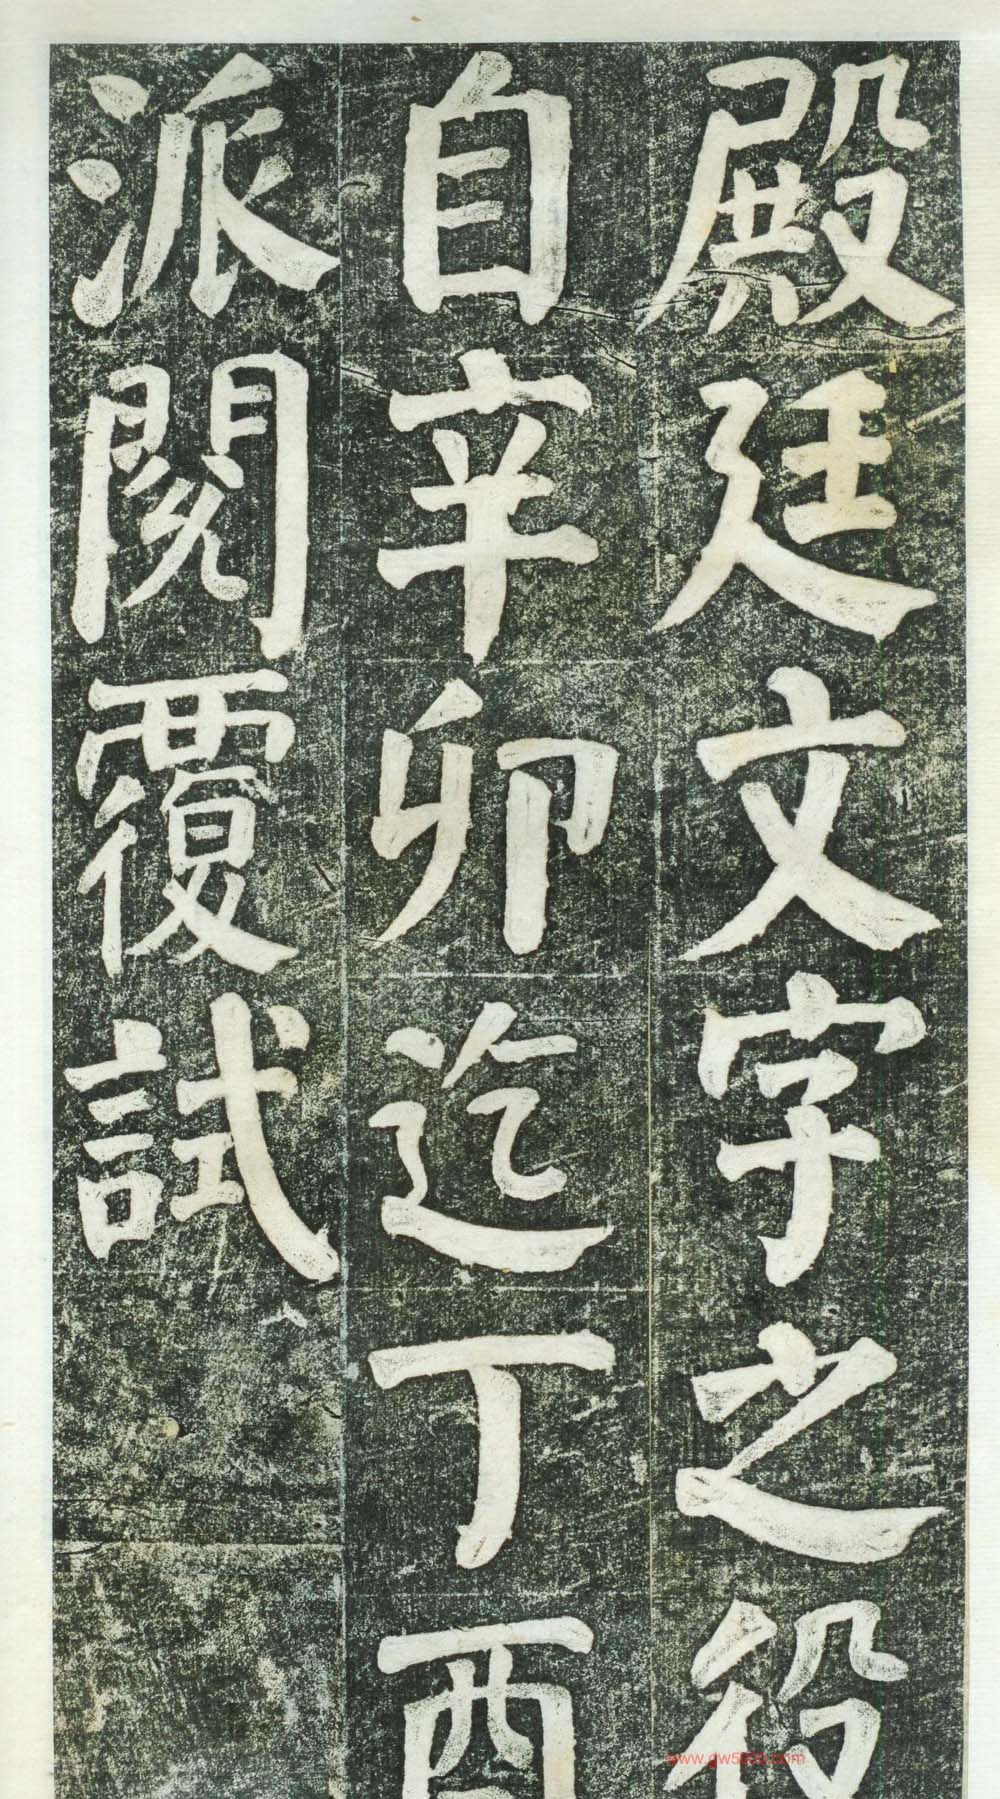 殿廷文字之役
自辛卯迄丁酉
派閱覆試
www.gw5000.com